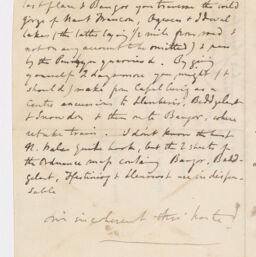 last place & Bangor you traverse the wild
gorge of Nant Francon, Ogwen & Idwal
lakes (the latter lying 1/2 mile from road &
not on any account to be omitted) & pass
by the Penrhyn quarries. By giving
yourself 2 days more you might (&
should) make from Capel Curig as a
Centre excursions to Llanberis, Beddgelert
& Snowdon & then on to Bangor, where
retake train. I don't know the best
N. Wales Guide book, but the 2 sheets of
the Ordnance map containing Bangor, Bedd-
gelert, Ffestiniog & Llanrwst are indispen-
sable
incoherent thro' haste